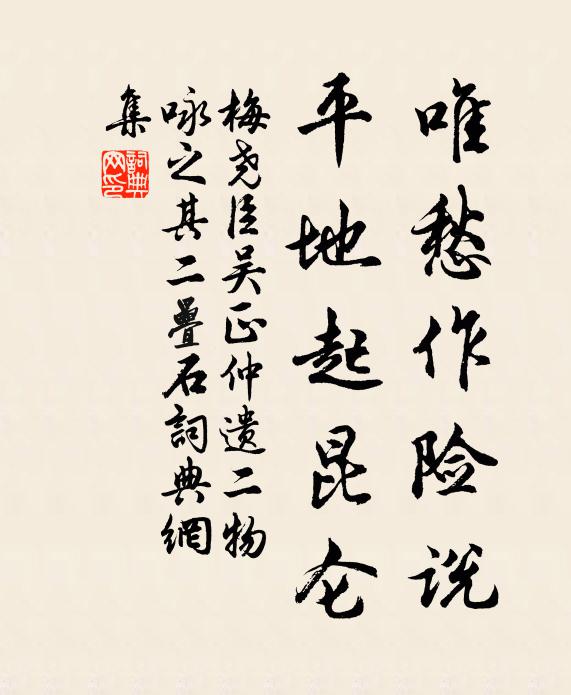 唯愁作险说
平地起昆仑
梅尧臣吴正仲遗二物
咏之其二疊石詞典網
集
詞典網印